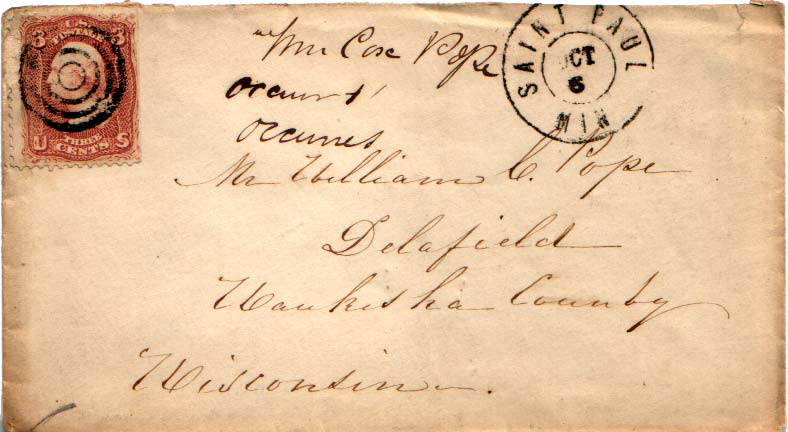 3 3
U.S.
POSTAGE
THREE
U S
CENTS
SAINT PAUL
OCT
6
MIN
Pope
occurs
Mr William C. Pope
Delafield
Waukesha County
Wisconsin.